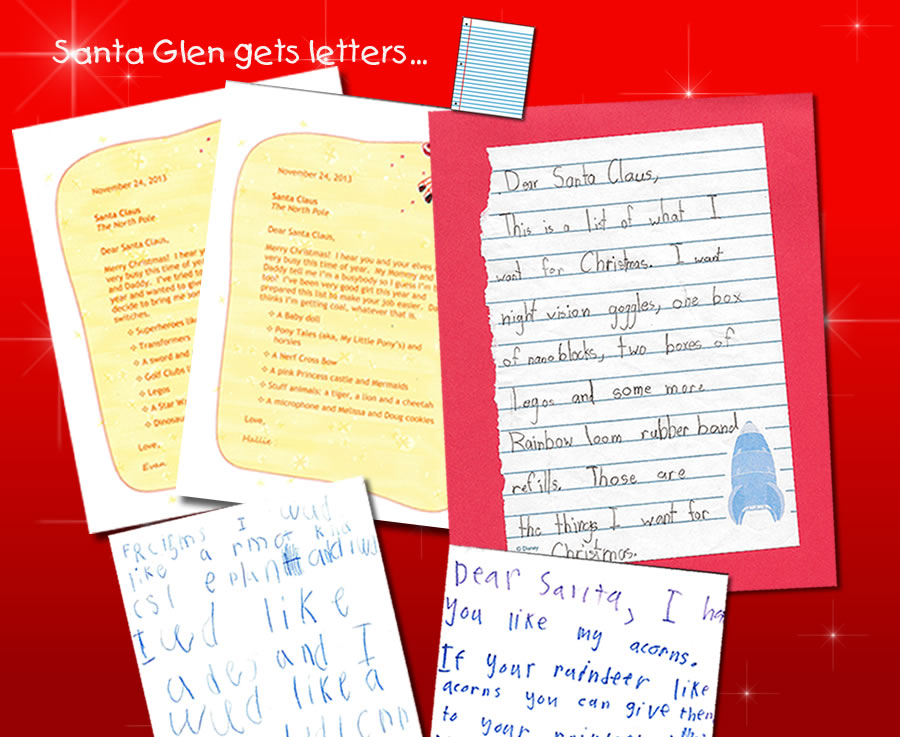 Santa Glen gets letters...
November 24, 2013
Santa Claus
The North Pole
Dear Santa Claus,
Merry Christmas! I hear yo
very busy this time of ye
and Daddy. I've tried
year and wanted to giv
decide to bring me so
switches.
Superheroes lik
Transformers
A sword and
Golf Clubs
Legos
A Star Wa
Dinosau
Love,
Evan
November 24, 2013
Santa Claus
The North Pole
Dear Santa Claus,
Merry Christmas! I hear you and your elves
very busy this time of year. My Mommy and
Daddy tell me I'm a busybody so I guess I'm
too? I've been very good girl this year and
prepared this list to make your job easier. Da
thinks I'm getting coal, whatever that is.
A Baby doll
Pony Tales (aka, My Little Pony's) and
horsies
A Nerf Cross Bow
A pink Princess castle and Mermaids
Stuff animals: a tiger, a lion and a cheetah
A microphone and Melissa and Doug cookies
Love,
Hallie
Dear Santa Claus,
This is a list of what I
want for Christmas. I want
night vision goggles, one box
of nanoblocks, two boxes of
Legos and some more
Rainbow loom rubber band
refills. Those are
the things I want for
© Disney Christmas.
I wud
like a
I wud like
and I
wud like a
Dear Santa, I ha
you like my acorns.
If your raindeer like
acorns you can give them
to your